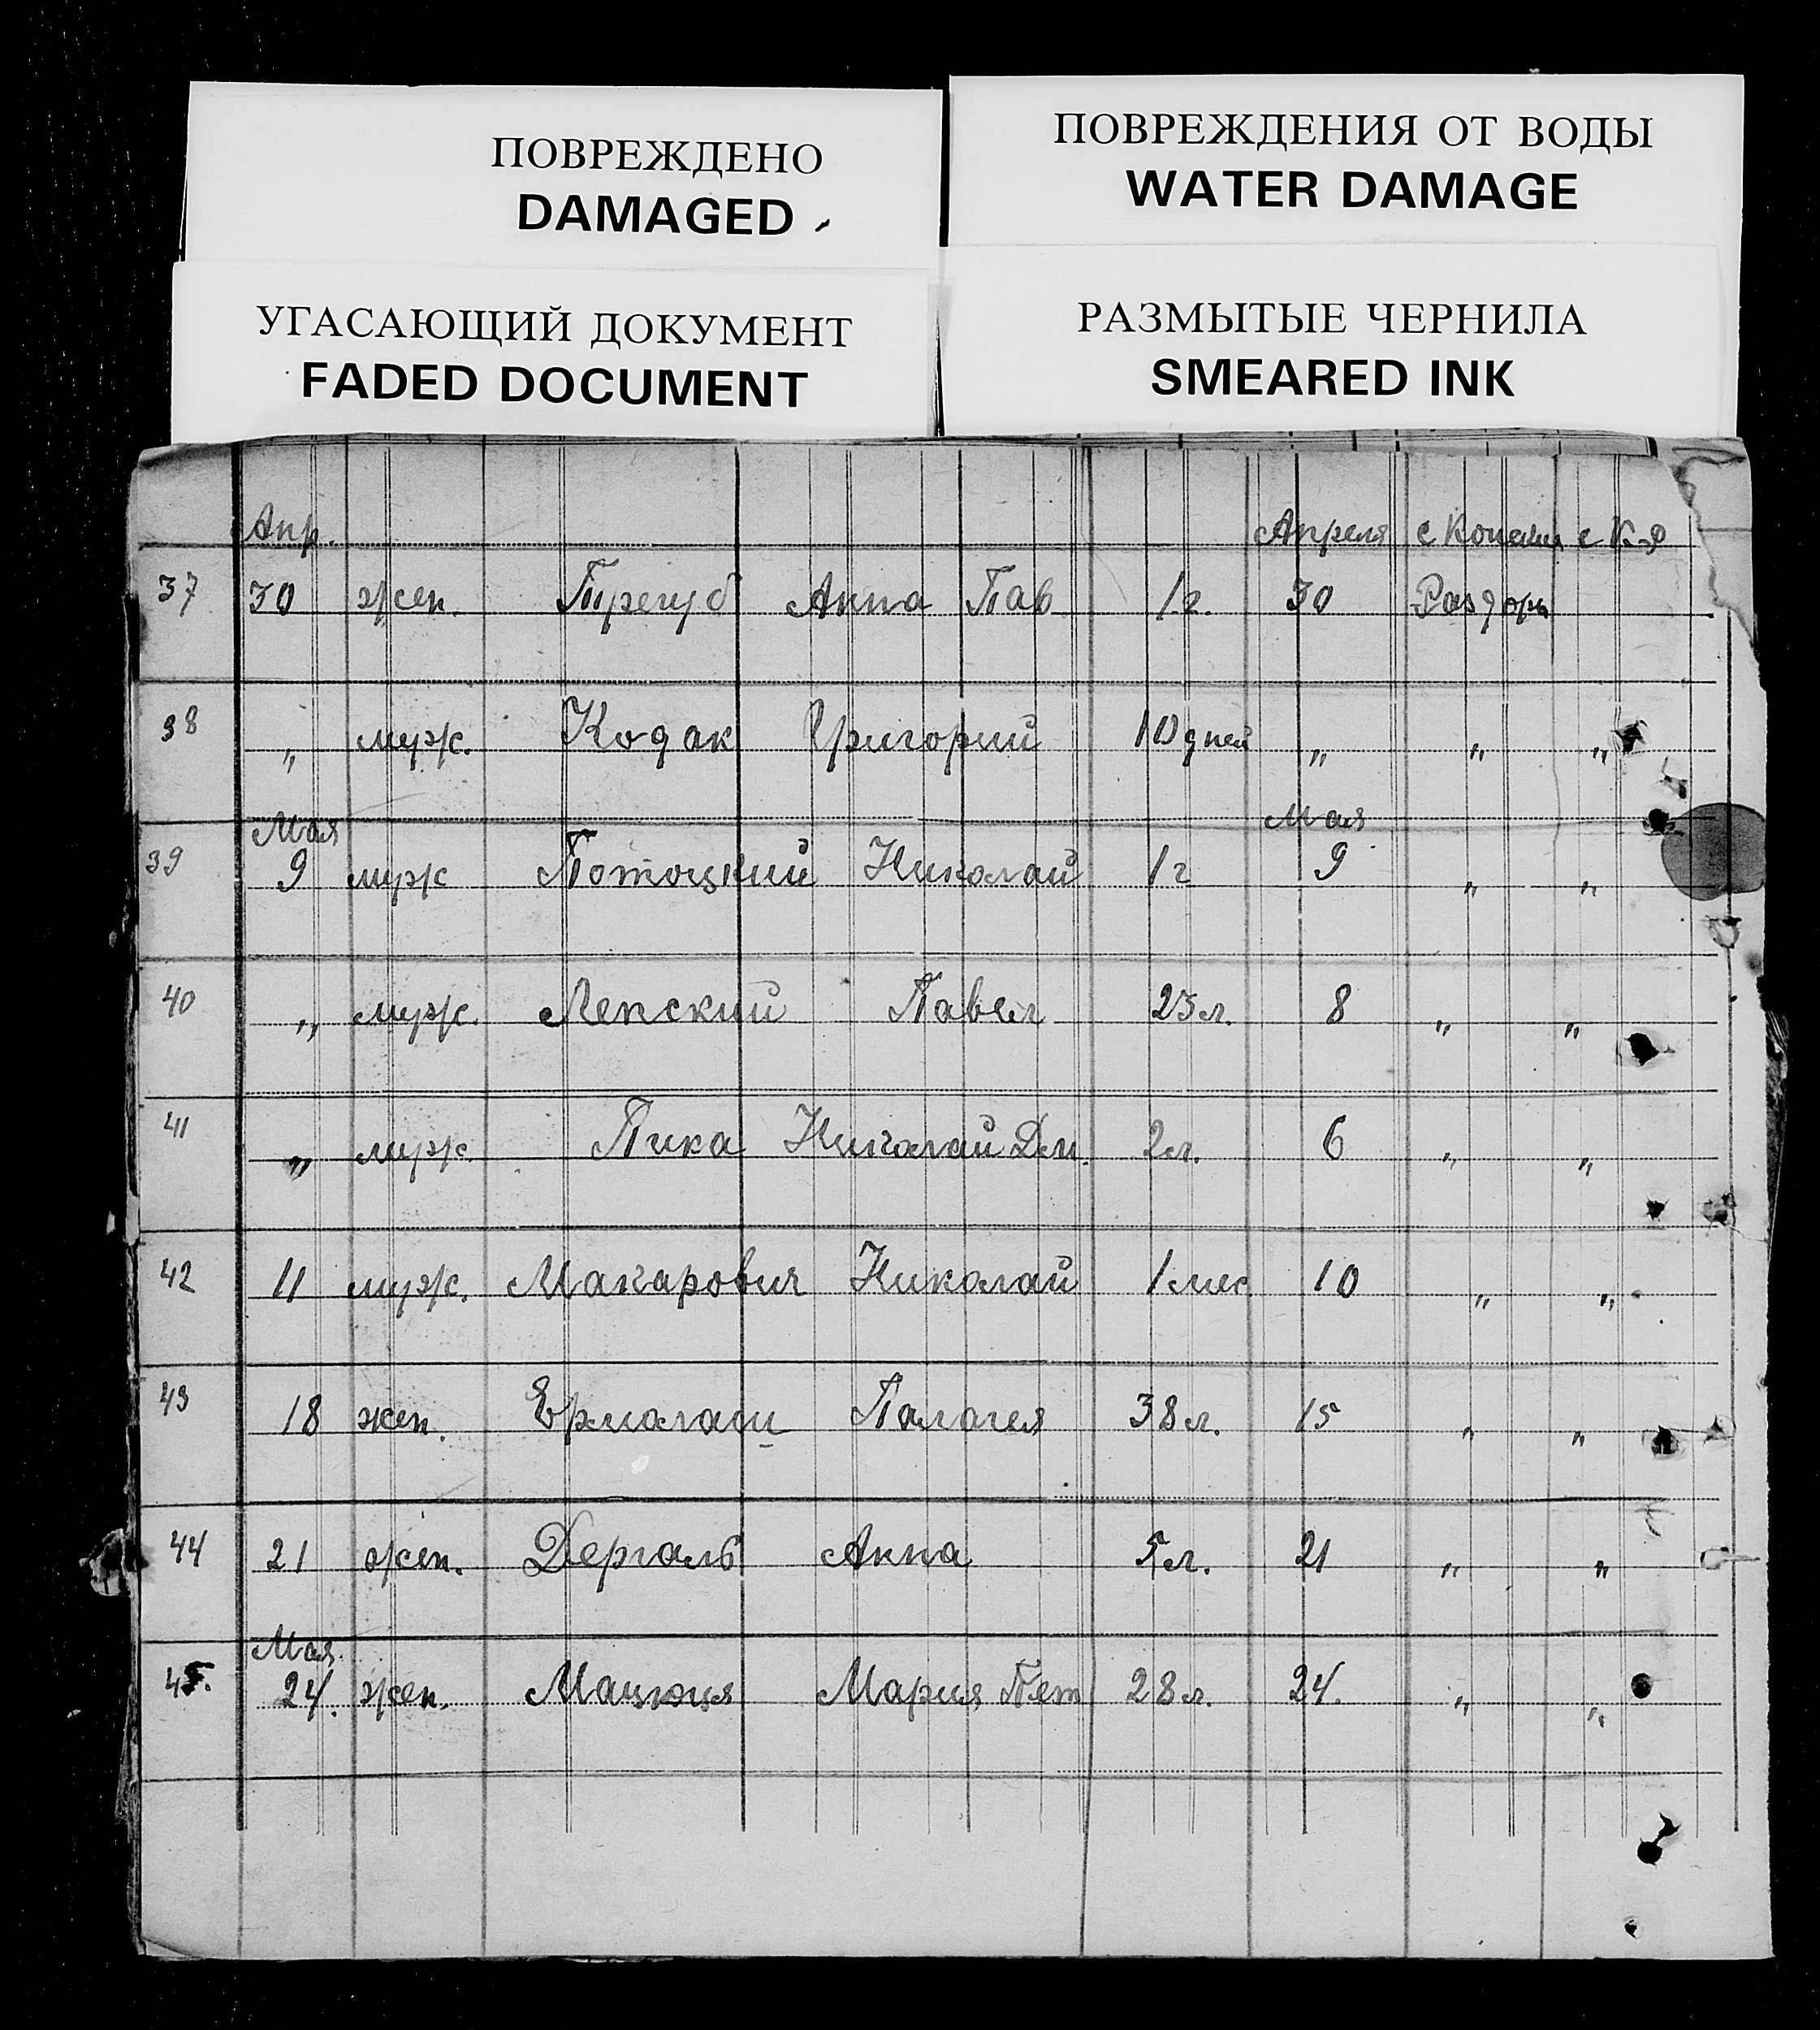 ПОВРЕЖДЕНО
DAMAGED
ПОВРЕЖДЕНИЯ ОТ ВОДЫ
WATER DAMAGE
УГАСАЮЩИЙ ДОКУМЕНТ
FADED DOCUMENT
РАЗМЫТЫЕ ЧЕРНИЛА
SMEARED INK
Апр. Апреля с с К-Р
37 30 жен. Трегуб Анна Пав 1 г. 30 Раздоры
38 „ муж. Кодак Григорий 10 дней „ „ „
Мая Мая
39 9 муж Потоцкий Николай 1 г 9 „ „
40 „ муж. Ленский Павел 23 л. 8 „ „
41 „ муж. Пика Николай Дм. 2 л. 6 „ „
42 11 муж. Макарович Николай 1 мес 10 „ „
43 18 жен. Ермолаш Палагея 38 л. 15 „ „
44 21 жен. Дергаль Анна 5 л. 21 „ „
Мая
45. 24. жен. Мацюця Мария Пет 28 л. 24. „ „